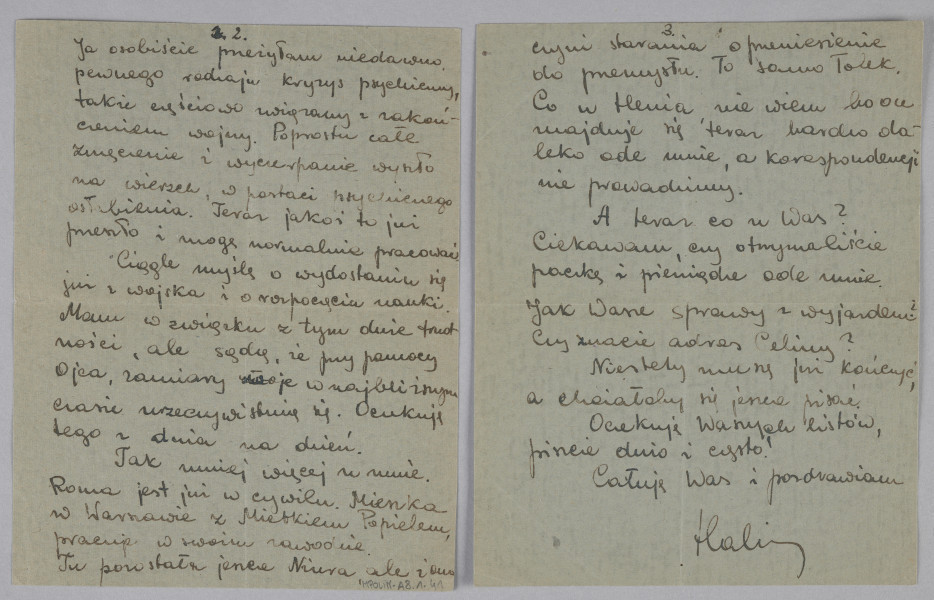 2.
Ja osobiście przeżyłam niedawno
pewnego rodzaju kryzys psychiczny,
także częściowo związany z zakoń-
czeniem wojny. Poprostu całe
zmęczenie i wyczerpanie wyszło
na wierzch, w postaci psychicznego
osłabienia. Teraz jakoś to już
przeszło i mogę normalnie pracować
Ciągle myślę o wydostaniu się
już z wojska i o rozpoczęciu nauki.
Mam w związku z tym duże trud
ności, ale sądzę, że przy pomocy
Ojca, zamiary moje w najbliższym
czasie urzeczywistnią się. Oczekuję
tego z dnia na dzień.
Tak mniej więcej u mnie.
Roma jest już w cywilu. Mieszka
w Warszawie z Mietkiem Popielem,
pracuje w swoim zawodzie.
Tu pozostała jeszcze Niura ale i ona
MPOLIN-A8.1.41
3.
czyni starania o przeniesienie
do przemysłu. To samo Tolek.
Co u Henia nie wiem bo on
znajduje się teraz bardzo da-
leko ode mnie, a korespondencji
nie prowadzimy.
A teraz co u Was?
Ciekawam, czy otrzymaliście
paczkę i pieniądze ode mnie.
Jak Wasze sprawy z wyjazdem?
Czy znacie adres Celiny?
Niestety muszę już kończyć,
a chciałoby się jeszcze pisać.
Oczekuję Waszych listów,
piszcie dużo i często!
Całuję Was i pozdrawiam
Halina